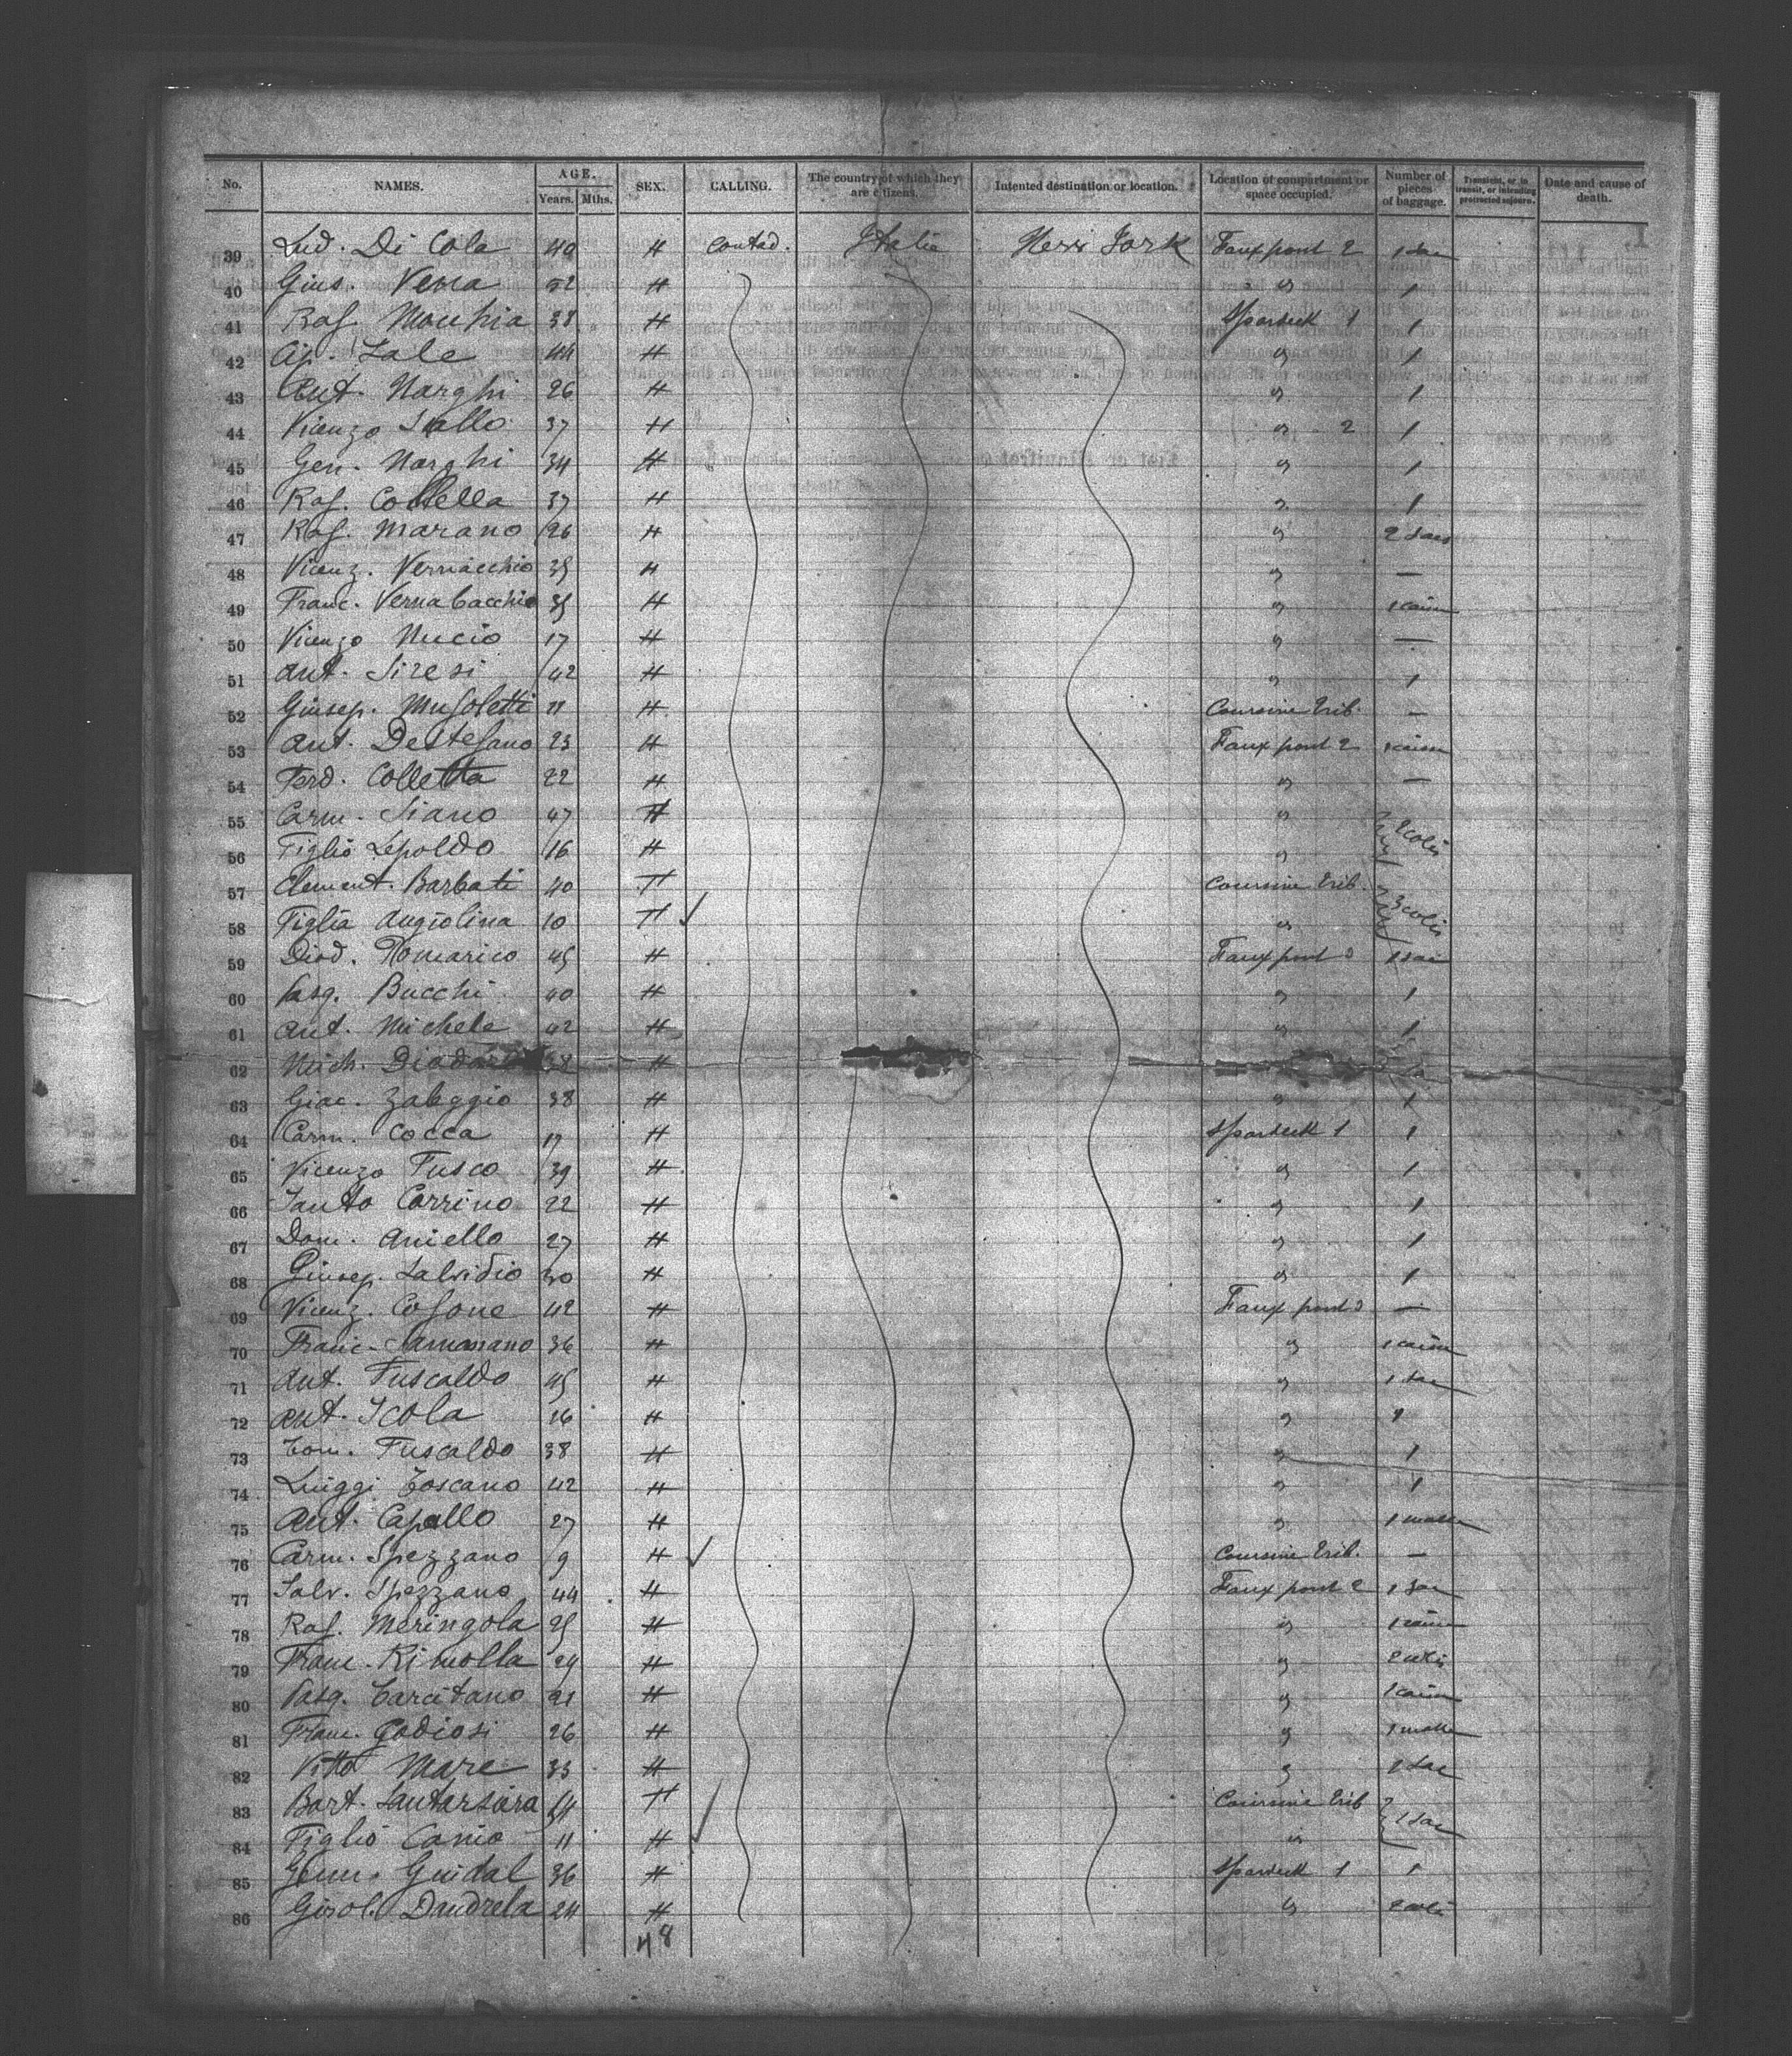 No. NAMES. AGE. Years. Mths. SEX. CALLING. The country of which they are citizens. Intented destination or location. Location of compartment or space occupied. Number of pieces of baggage. Transient, or in transit, or intending protracted sojourn. Date and cause of death.
39 Lud. Di Cola 40 H contad. Italie New York Faux pont 2 1 sac
40 Gius. Verra 52 H " 1
41 Raf. Mochia 38 H Spardeck 1 1
42 Lale 44 H " 1
43 Ant. Narghi 26 H " 1
44 Vicenzo Iallo 37 H " 2 1
45 Gen. Narghi 34 H " 1
46 Raf. Collella 37 H " 1
47 Raf. Marano 26 H " 2 sacs
48 Vicenz. Vernacchio 35 H " —
49 Franc. Vernabacchio 35 H " 1
50 Vicenzo Nucio 17 H " —
51 Ant. Siresi 42 H " 1
52 Giusep. Musoletti 11 H Coursine Trib. —
53 Ant. Destefano 23 H Faux pont 2
54 Ferd. Colletta 22 H " —
55 Carm. Siano 47 H " 2 colis
56 Figlio Lepoldo 16 H "
57 Clement. Barbati 40 F Coursine Trib. 3 colis
58 Figlia Angiolina 10 F "
59 Diod. Romarico 45 H Faux pont 2 1 sac
60 Pasq. Bucchi 40 H " 1
61 Ant. Michele 42 H " 1
62 Mich. H
63 Giac. Zaleggio 38 H " 1
64 Carm. Cocca 17 H Spardeck 1 1
65 Vicenzo Fusco 39 H " 1
66 Santo Corrino 22 H " 1
67 Dom. Aniello 27 H " 1
68 Giusep. Salvidio 30 H " 1
69 Vicenz. Cosone 42 H Faux pont 2 —
70 Franc. 36 H " 1
71 Ant. Fuscaldo 45 H " 1 sac
72 Ant. Scola 16 H " 1
73 Tom. Fuscaldo 38 H " 1
74 Luiggi Toscano 42 H " 1
75 Ant. Capallo 27 H " 1 malle
76 Carm. Spezzano 9 H Coursine Trib. —
77 Salv. Spezzano 44 H Faux pont 2 1 sac
78 Raf. Meringola 25 H " 1
79 Franc. Rimolla 29 H " 2 colis
80 Pasq. Tarcitano 21 H " 1
81 Franc. Godiosi 26 H " 1 malle
82 Vitto Mare 33 H " 1 sac
83 Bart. Santarsiera F Coursine Trib 1 sac
84 Figlio Canio 11 H "
85 Guidal 36 H Spardeck 1 1
86 Girol. Dandrela 24 H " 2 colis
48